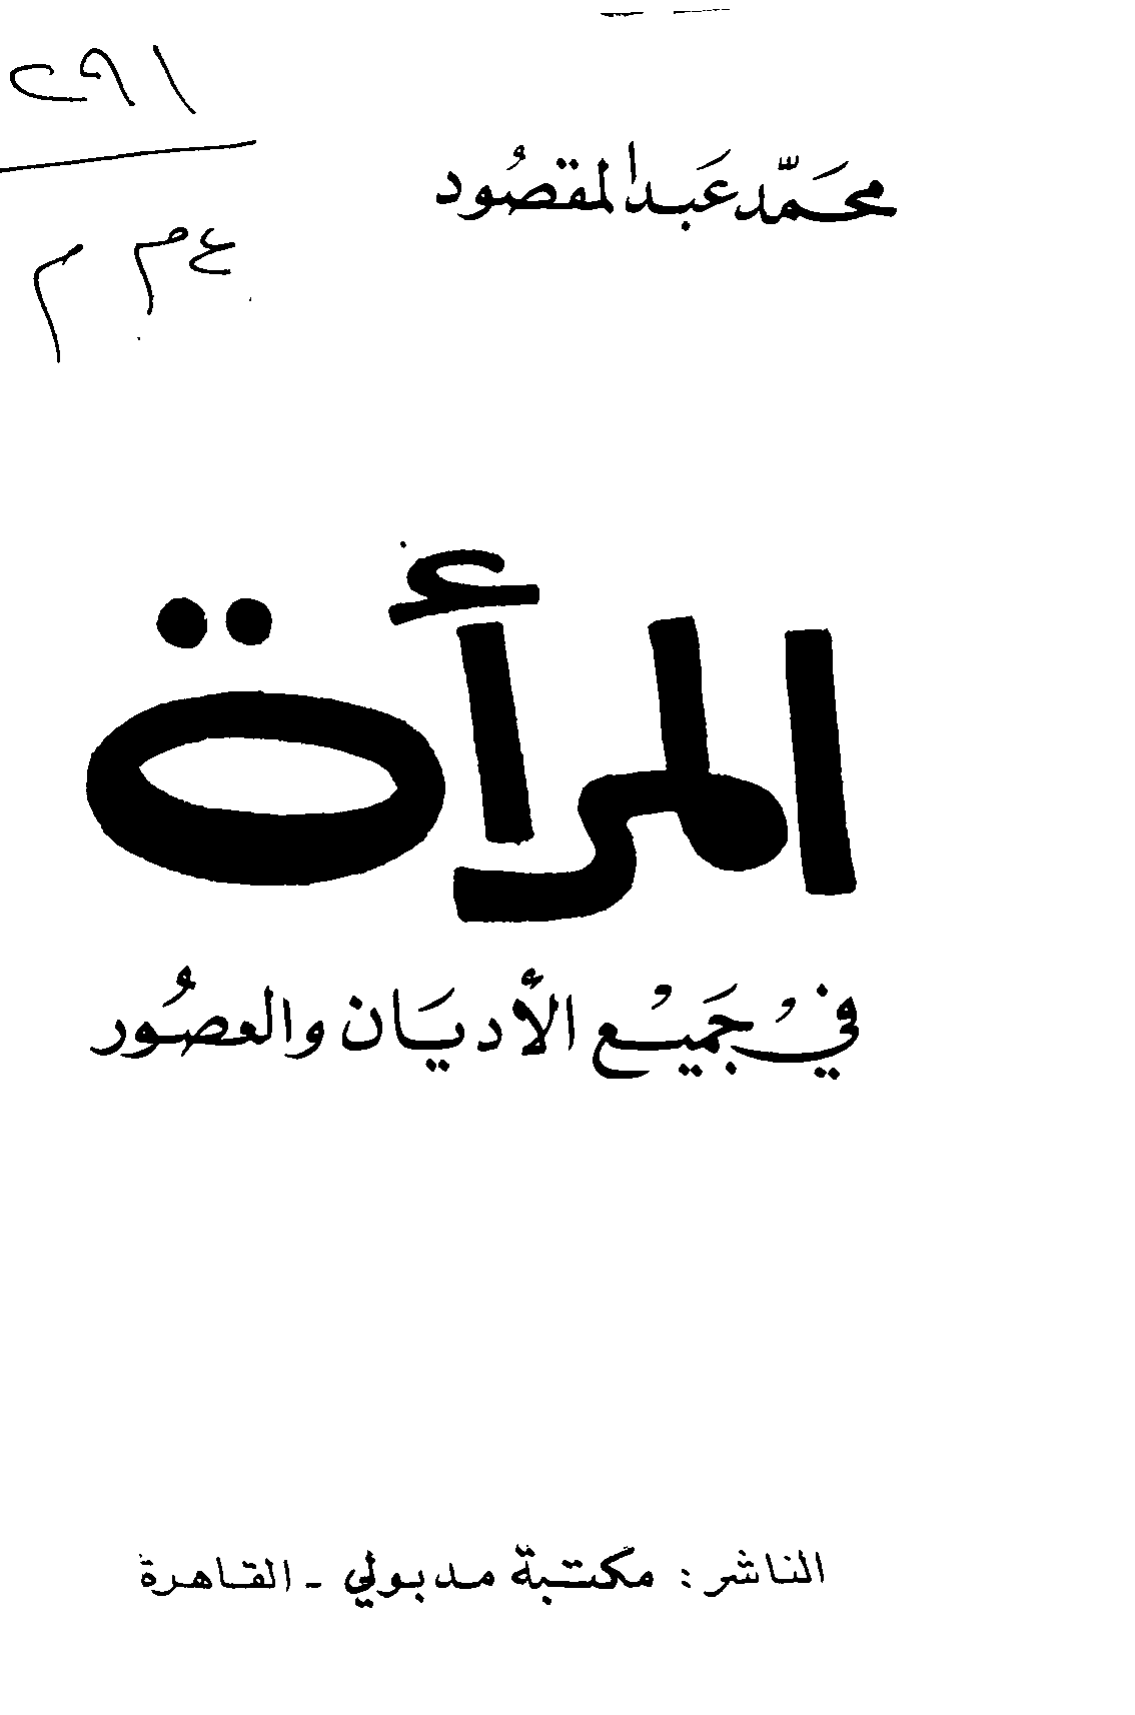 محَمّد عَبد المقصُود
المرأة
في جَميْع الأديَان والعصُور
الناشر : مكتبة مدبولي - القاهرة